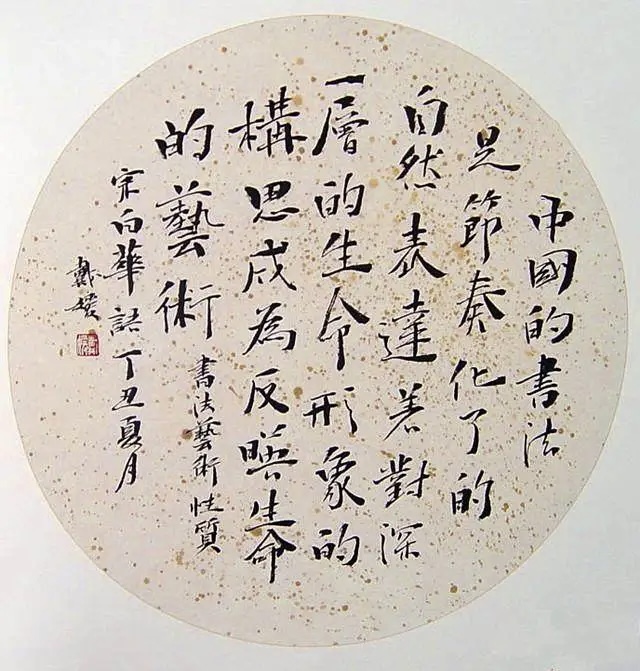 中國的書法
是節奏化了的
自然表達着對深
一層的生命形象的
構思成為反暎生命
的藝術
書法藝術性質
宗白華語丁丑夏月
戴媛